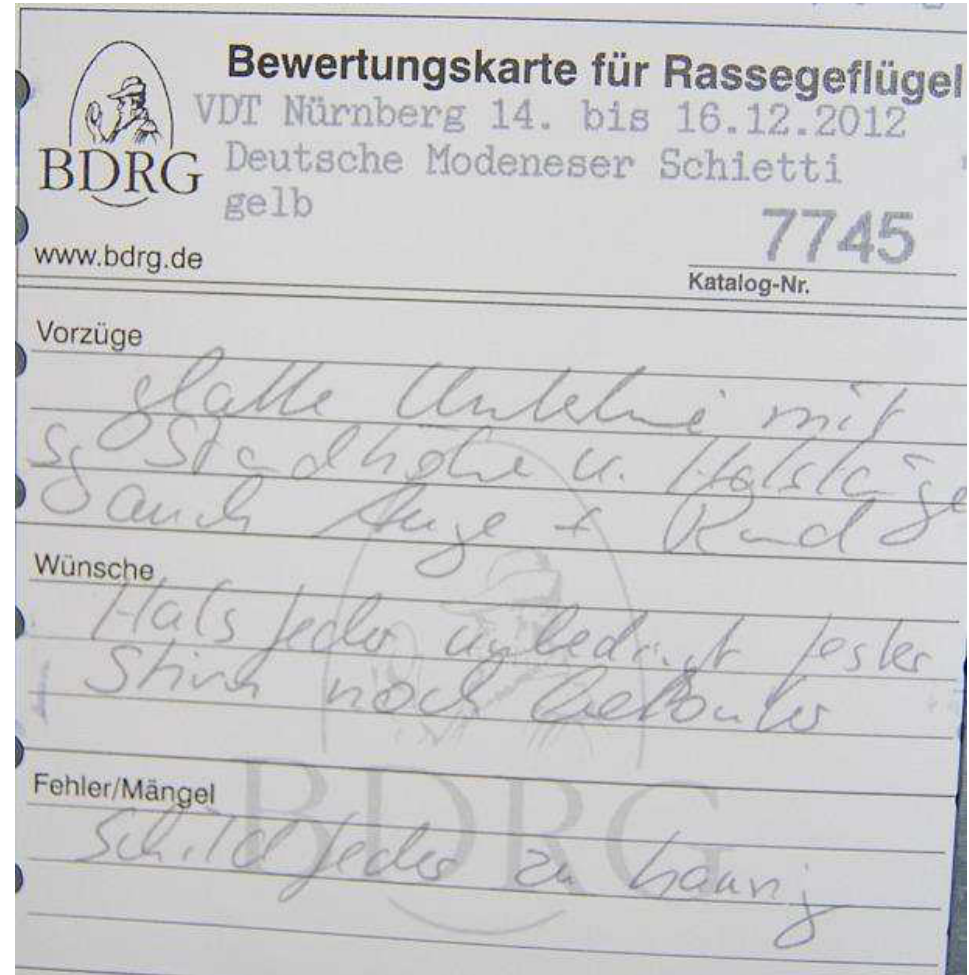 Bewertungskarte für Rassegeflügel
VDT Nürnberg 14. bis 16.12.2012
BDRG
Deutsche Modeneser Schietti
gelb
7745
www.bdrg.de
Katalog-Nr.
Vorzüge
glatte Unterlinie mit
sg Standhöhe u. Halslänge
auch Auge + Rand
Wünsche
Halsfeder unbedingt fester
Stirn noch betonter
Fehler/Mängel
Schildfeder zu haarig
BDRG